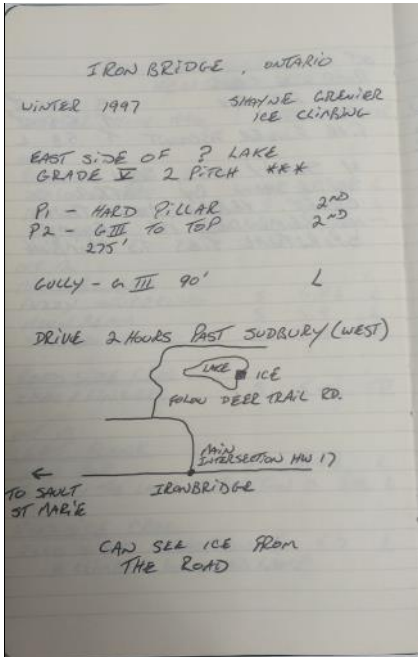 IRON BRIDGE, ONTARIO
WINTER 1997 SHAYNE GRENIER
ICE CLIMBING
EAST SIDE OF ? LAKE
GRADE V 2 PITCH ***
P1 - HARD PILLAR 2ND
P2 - G III TO TOP 2ND
275'
GULLY - G III 90' L
DRIVE 2 HOURS PAST SUDBURY (WEST)
LAKE ICE
FOLOW DEER TRAIL RD.
MAIN
INTERSECTION HW 17
TO SAULT
ST MARIE
IRONBRIDGE
CAN SEE ICE FROM
THE ROAD